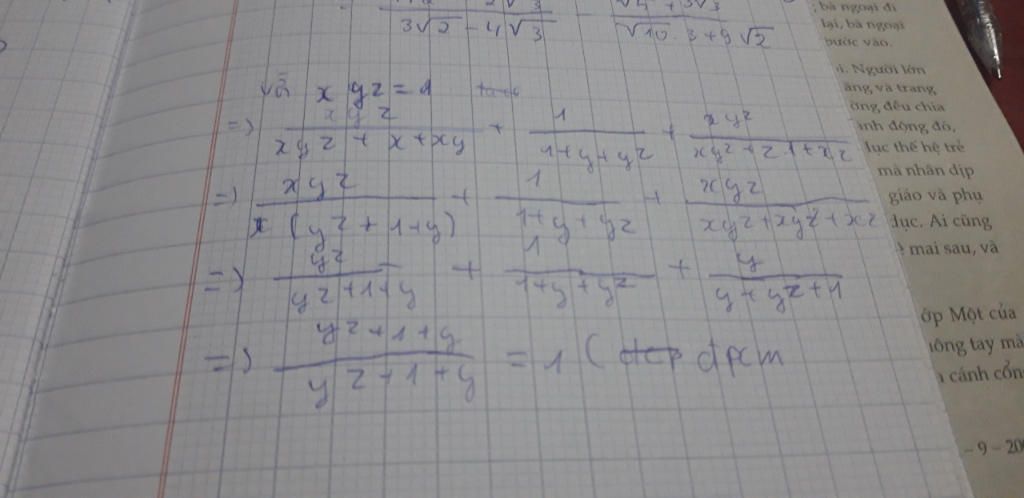 3√2 - 4√3 √10 . 3 + 9√2
Vì xyz = 1
=) xyz / xyz + x + xy + 1 / 1 + y + yz + xyz / xyz + z1 + xz
=) xyz / x (yz + 1 + y) + 1 / 1 + y + yz + xyz / xyz + xyz + xz
=) yz / yz + 1 + y + 1 / 1 + y + yz + y / y + yz + 1
=) yz + 1 + y / yz + 1 + y = 1 ( đpcm
bà ngoại đi
lại, bà ngoại
bước vào.
Người lớn
và trang
đều chia
động đó,
dục thế hệ trẻ
mà nhân dịp
giáo và phụ
dục. Ai cũng
mai sau, và
Một của
tay mà
cánh
- 9 - 20